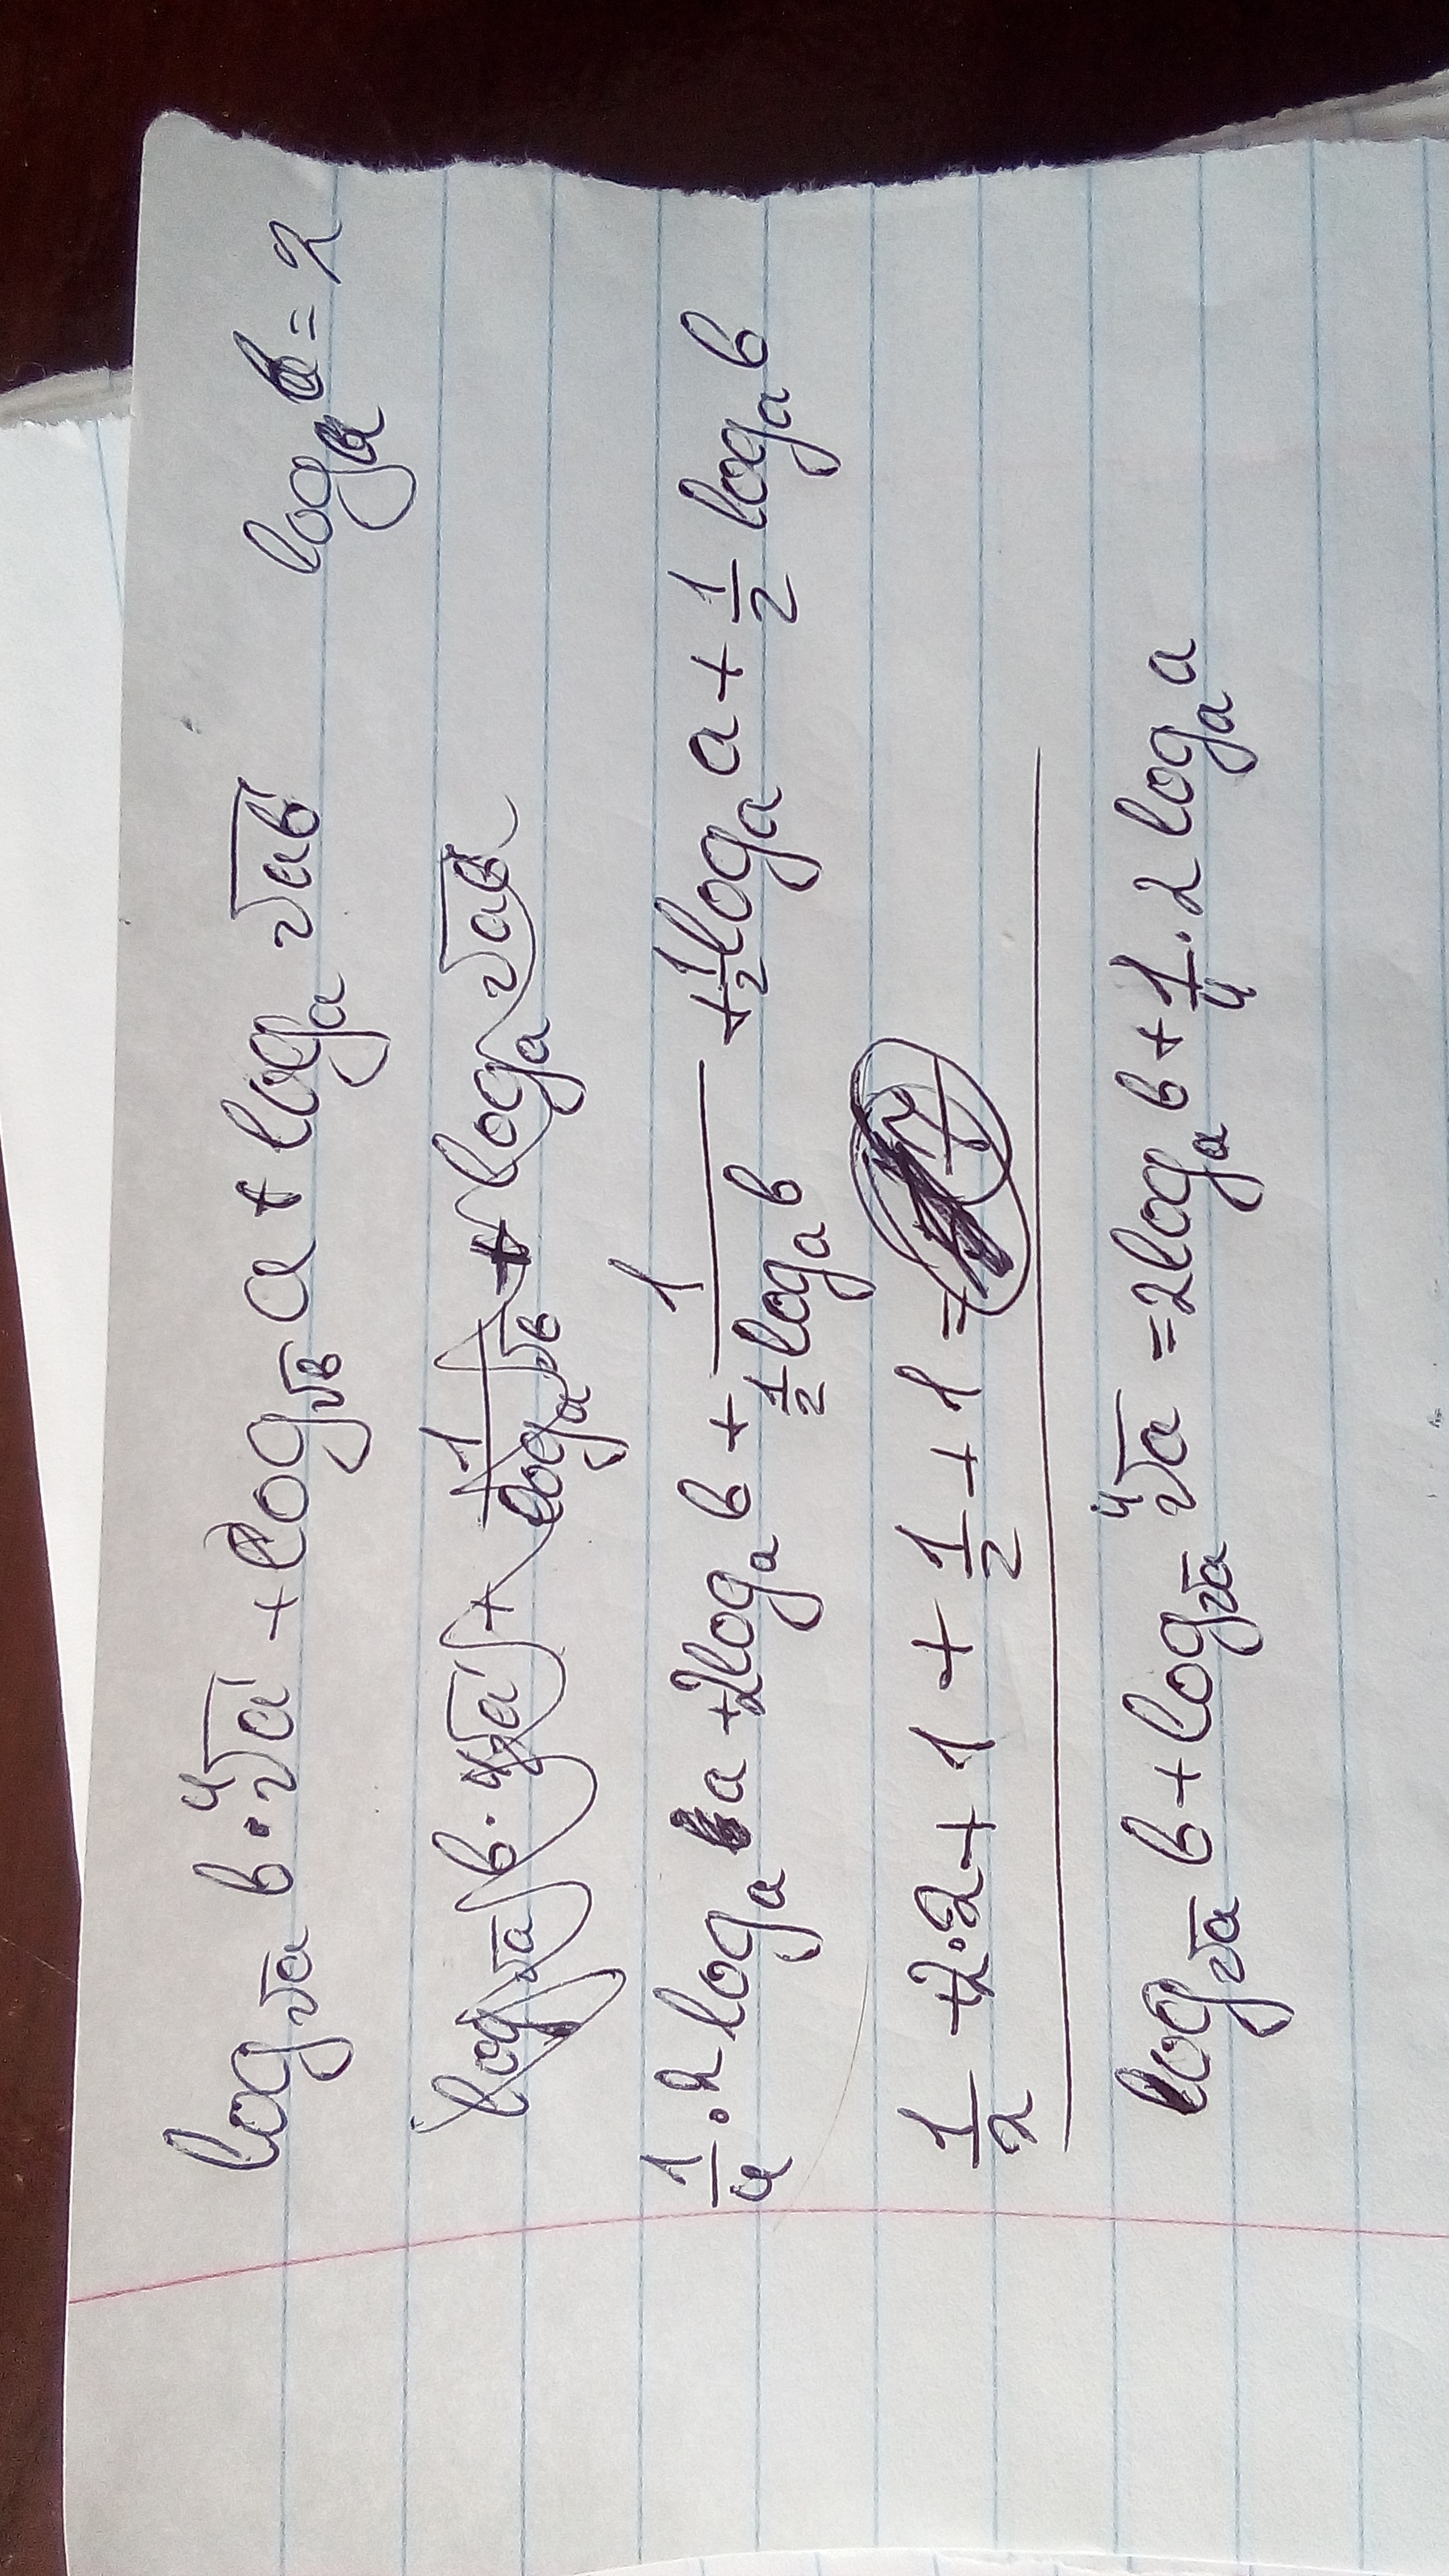 log_√a в · ⁴√a + log_√в a + log_a √aв log_a b = 2
log_√a в · ⁴√a + 1/log_a √в + log_a √aв
1/4 · 2 log_a a + 2log_a в + 1/(1/2 log_a в) + 1/2 log_a a + 1/2 log_a в
1/2 + 2·2 + 1 + 1/2 + 1 = 7
log_√a в + log_√a ⁴√a = 2log_a в + 1/4 · 2 log_a a